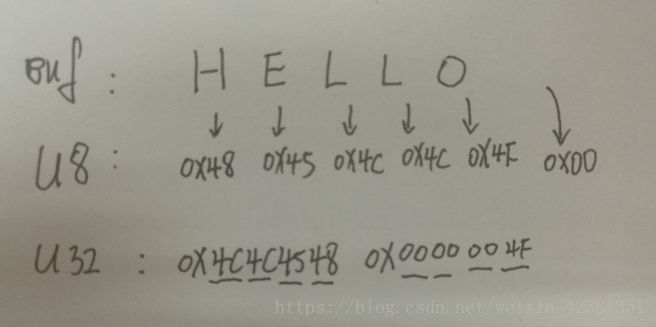 Buf : H E L L O
U8 : 0X48 0X45 0X4C 0X4C 0X4F 0X00
U32 : 0X4C4C4548 0X0000004F
https://blog.csdn.net/weixin_42381351